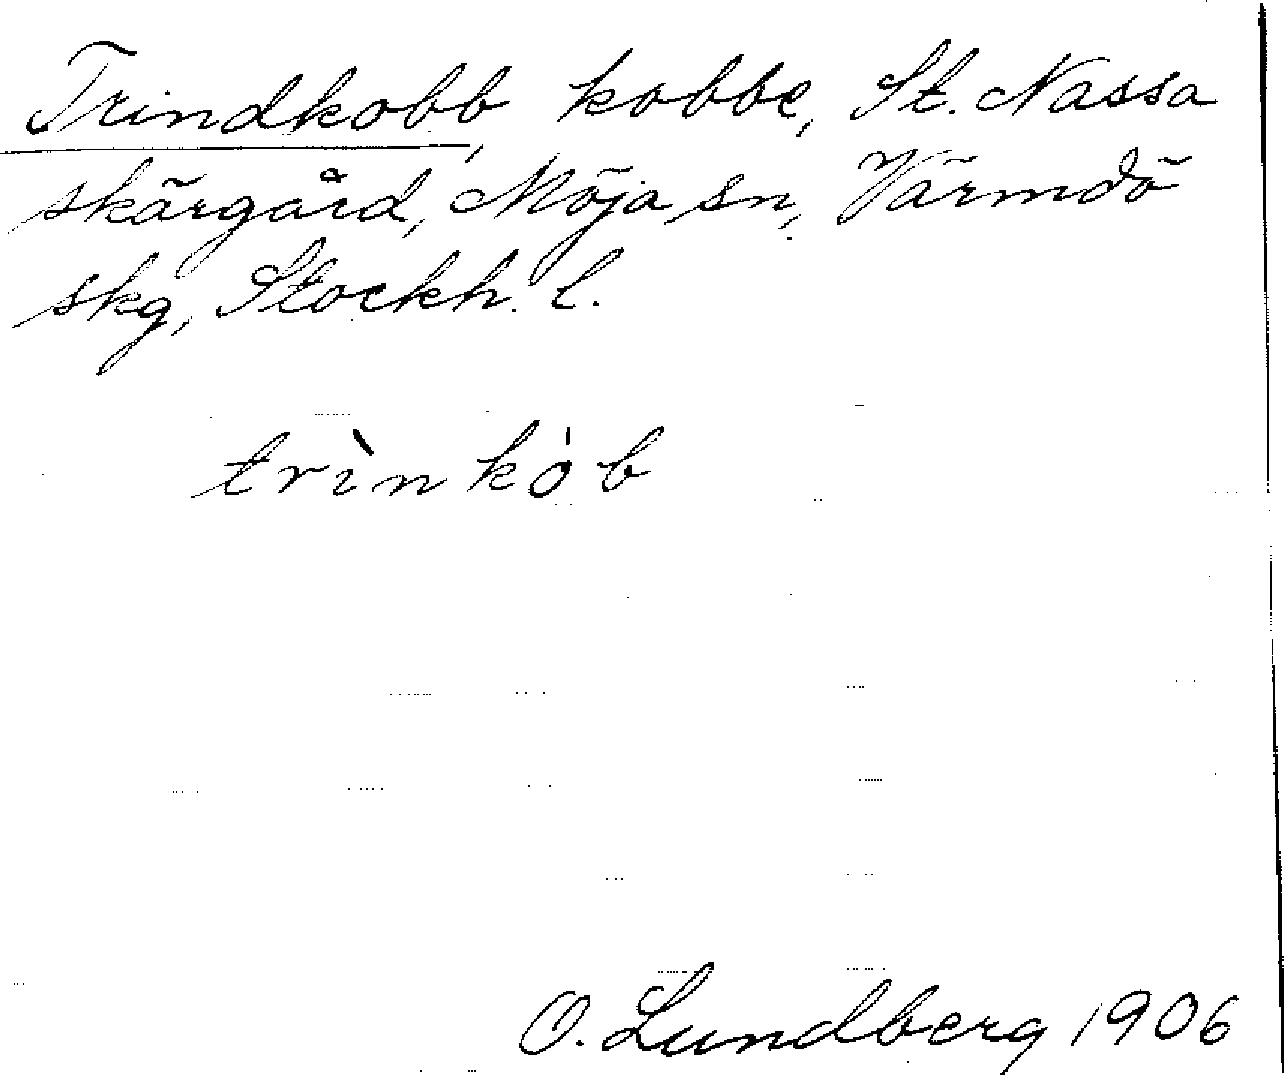 Trindkobb, kobbe, St. Nassa
skärgård, Möja sn, Värmdö
skg, Stockh. l.
trìnkȯ́b
O. Lundberg 1906